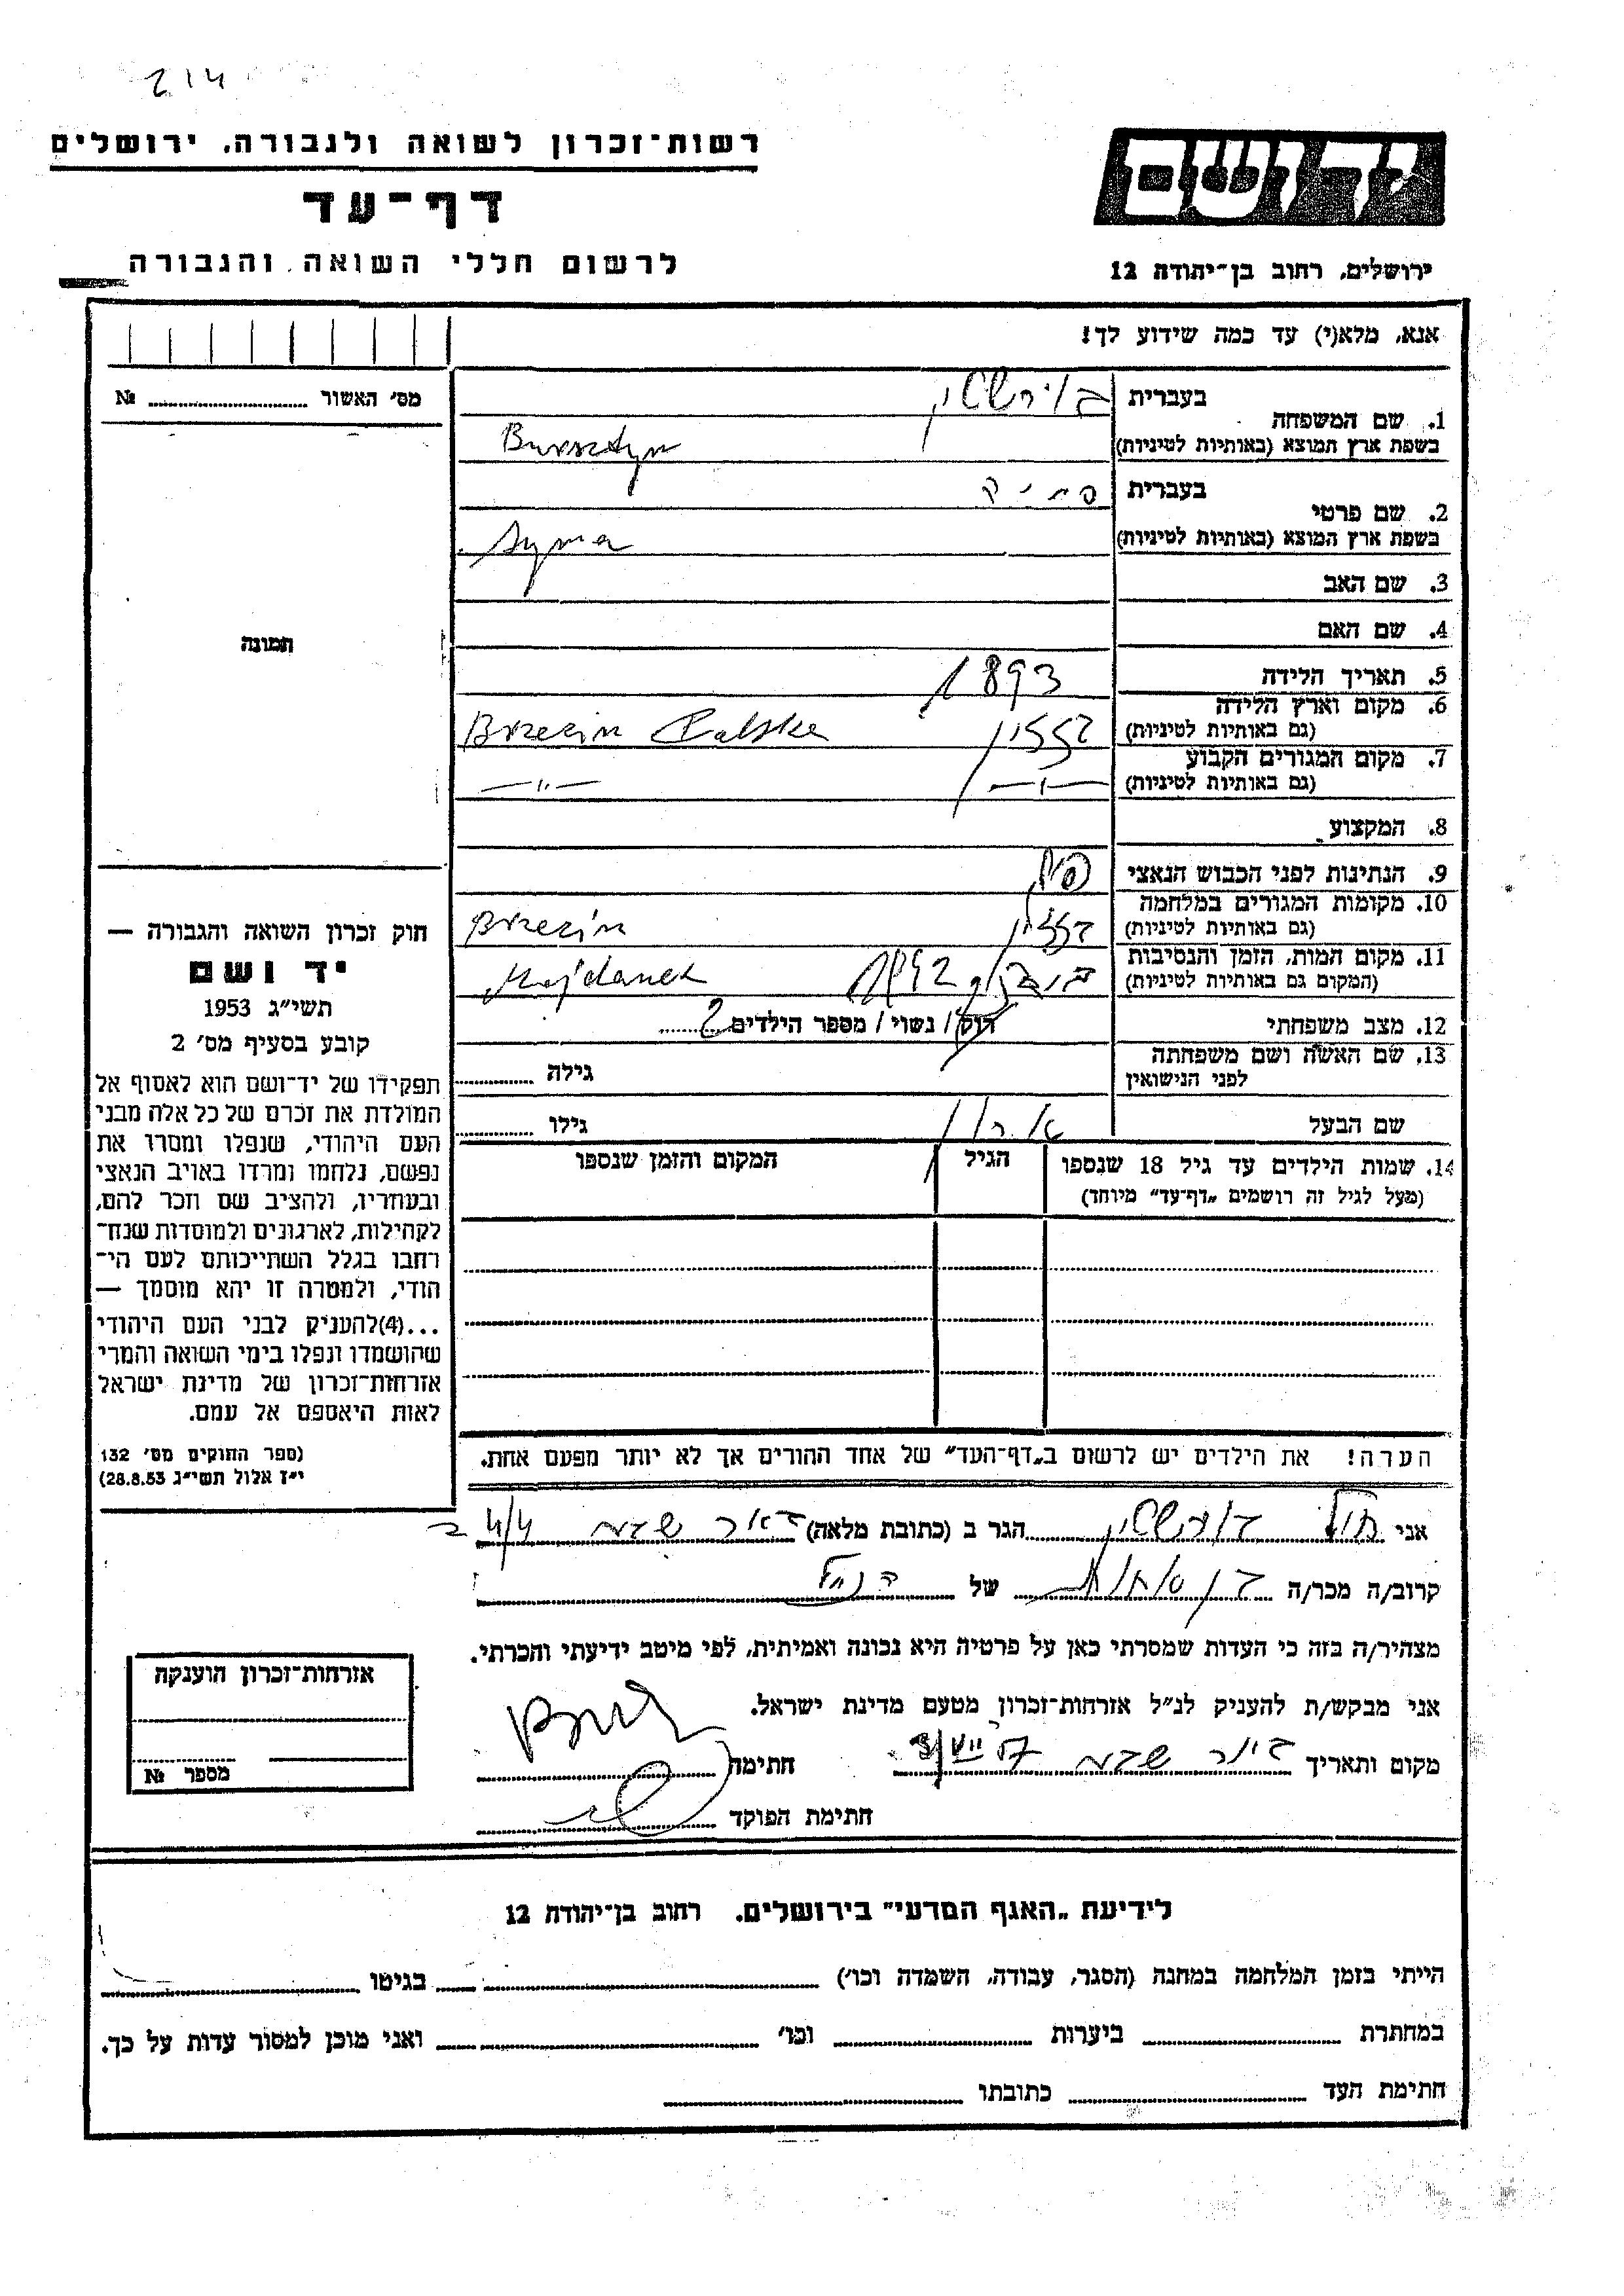 214
רשות־זכרון לשואה ולגבורה, ירושלים
יד ושם
דף־עד
לרשום חללי השואה והגבורה
ירושלים, רחוב בן־יהודה 12
אנא, מלא(י) עד כמה שידוע לך!
מס׳ האשור №
בעברית
1. שם המשפחה
בשפת ארץ המוצא (באותיות לטיניות)
בורשטין
Bursztyn
בעברית
2. שם פרטי
בשפת ארץ המוצא (באותיות לטיניות)
Syma
3. שם האב
4. שם האם
5. תאריך הלידה 1893
6. מקום וארץ הלידה
(גם באותיות לטיניות)
ברזזין Brzezin Polska
7. מקום המגורים הקבוע
(גם באותיות לטיניות)
—"— —"—
8. המקצוע
9. הנתינות לפני הכבוש הנאצי פול.
10. מקומות המגורים במלחמה
(גם באותיות לטיניות)
Brzezin
11. מקום המות, הזמן והנסיבות
(המקום גם באותיות לטיניות)
1942 Majdanek
12. מצב משפחתי רוק / נשוי / מספר הילדים 2
13. שם האשה ושם משפחתה
לפני הנישואין
גילה
שם הבעל גילו
14. שמות הילדים עד גיל 18 שנספו
(מעל לגיל זה רושמים „דף־עד״ מיוחד)
הגיל
המקום והזמן שנספו
הערה! את הילדים יש לרשום ב„דף־העד״ של אחד ההורים אך לא יותר מפעם אחת.
אני בורשטין הגר ב (כתובת מלאה) באר שבע 4/4
קרוב/ה מכר/ה בן אחות של הנ״ל
מצהיר/ה בזה כי העדות שמסרתי כאן על פרטיה היא נכונה ואמיתית, לפי מיטב ידיעתי והכרתי.
אני מבקש/ת להעניק לנ״ל אזרחות־זכרון מטעם מדינת ישראל.
מקום ותאריך באר שבע חתימה
חתימת הפוקד
תמונה
חוק זכרון השואה והגבורה —
יד ושם
תשי״ג 1953
קובע בסעיף מס׳ 2
תפקידו של יד־ושם הוא לאסוף אל
המולדת את זכרם של כל אלה מבני
העם היהודי, שנפלו ומסרו את
נפשם, נלחמו ומרדו באויב הנאצי
ובעוזריו, ולהציב שם וזכר להם,
לקהילות, לארגונים ולמוסדות שנח־
רבו בגלל השתייכותם לעם הי־
הודי, ולמטרה זו יהא מוסמך —
...(4)להעניק לבני העם היהודי
שהושמדו ונפלו בימי השואה והמרי
אזרחות־זכרון של מדינת ישראל
לאות היאספם אל עמם.
(ספר החוקים מס׳ 132
י״ז אלול תשי״ג 28.8.53)
אזרחות־זכרון הוענקה
מספר №
לידיעת „האגף המדעי״ בירושלים, רחוב בן־יהודה 12
הייתי בזמן המלחמה במחנה (הסגר, עבודה, השמדה וכו׳) בגיטו
במחתרת ביערות וכו׳ ואני מוכן למסור עדות על כך.
חתימת העד כתובתו